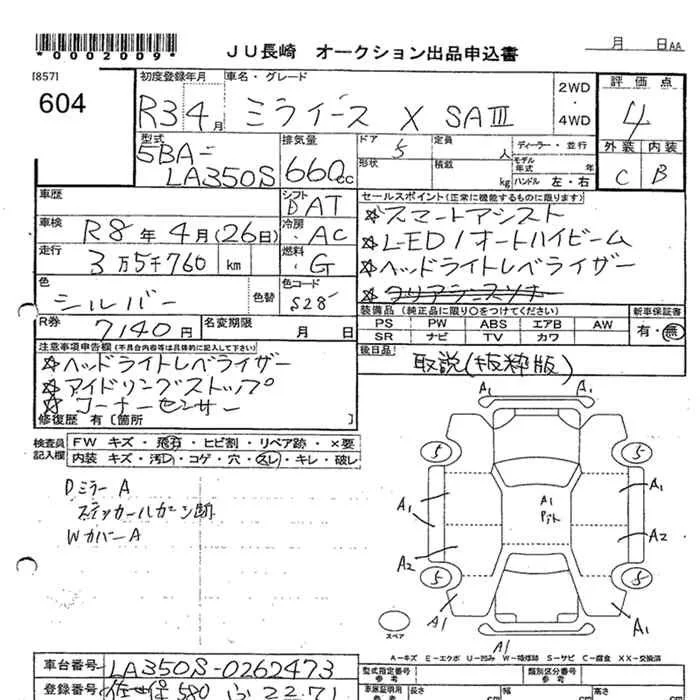 *0002009*
JU長崎 オークション出品申込書
月 日AA
[857]
604
初度登録年月 車名・グレード
R3 4月 ミライース X SAⅢ
2WD
・
4WD
評価点
4
外装 内装
C B
型式 排気量 ドア 定員 ディーラー・並行
5BA-
LA350S 660cc 5 人
形状 積載 kg モデル年式 年
ハンドル 左・右
車歴 シフト AT
セールスポイント(正常に機能するものに限ります)
☆スマートアシスト
車検 R8年4月(26日) 冷房 AC
☆LED/オートハイビーム
走行 3万5千760 km 燃料 G
☆ヘッドライトレベライザー
色 シルバー 色替 色コード S28
装備品(純正品に限り○をつけてください) 新車保証書
PS PW ABS エアB AW 有・無
SR ナビ TV カワ
R券 7140円 名変期限 月 日
後日品 取説(抜粋版)
注意事項申告欄(不具合内容等は具体的に記入して下さい)
☆ヘッドライトレベライザー
☆アイドリングストップ
☆コーナーセンサー
修復歴 有〔箇所 〕
検査員記入欄
FW キズ・飛石・ヒビ割・リペア跡・×要
内装 キズ・汚レ・コゲ・穴・スレ・キレ・破レ
Dミラー A
ステッカーハガシ跡
Wカバー A
A1 A1
5 5
A1 A1 A1
Pit
A2 A2
5 5
A1 A1
A1
スペア
A-キズ E-エクボ U-凹み W-補修跡 S-サビ C-腐食 XX-交換済
車台番号 LA350S-0262473
型式指定番号 類別区分番号
参考 参考
登録番号 佐世保 580 ふ 2271
車庫証明用 長さ 幅 高さ
参考 cm cm cm